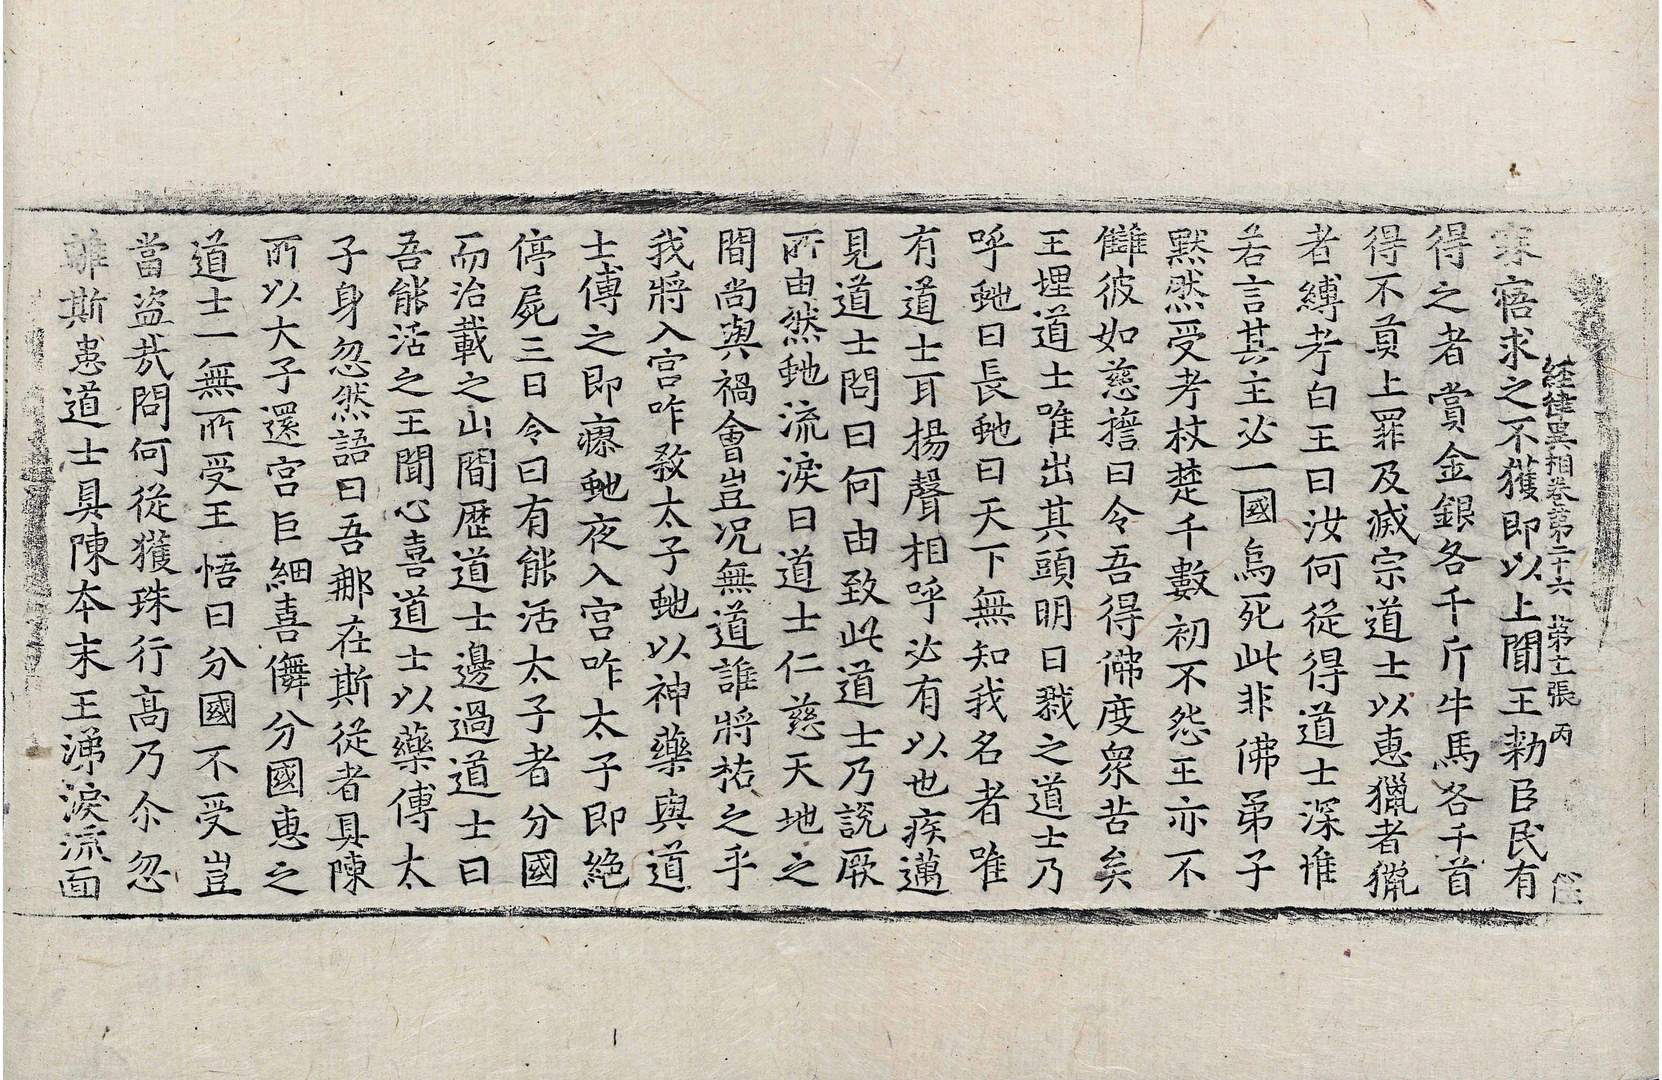 経律異相卷第二十六 第十二張 丙
寐寤求之不獲即以上聞王勑臣民有
得之者賞金銀各千斤牛馬各千首
得不貢上罪及滅宗道士以惠獵者獵
者縛考白王曰汝何從得道士深惟
若言其主必一國烏死此非佛弟子
黙然受考杖楚千數初不怨王亦不
讎彼如慈擔曰令吾得佛度衆苦矣
王埋道士唯出其頭明日戮之道士乃
呼虵曰長虵曰天下無知我名者唯
有道士耳揚聲相呼必有以也疾邁
見道士問曰何由致此道士乃說厥
所由然虵流淚曰道士仁慈天地之
間尚與禍會豈況無道誰將祐之乎
我將入宮咋敎太子虵以神藥與道
士傅之即瘳虵夜入宮咋太子即絕
停屍三日令曰有能活太子者分國
而治載之山間歷道士邊過道士曰
吾能活之王聞心喜道士以藥傅太
子身忽然語曰吾那在斯從者具陳
所以大子還宮巨細喜儛分國惠之
道士一無所受王悟曰分國不受豈
當盜㢤問何從獲珠行髙乃尒忽
離斯患道士具陳夲末王涕淚流面